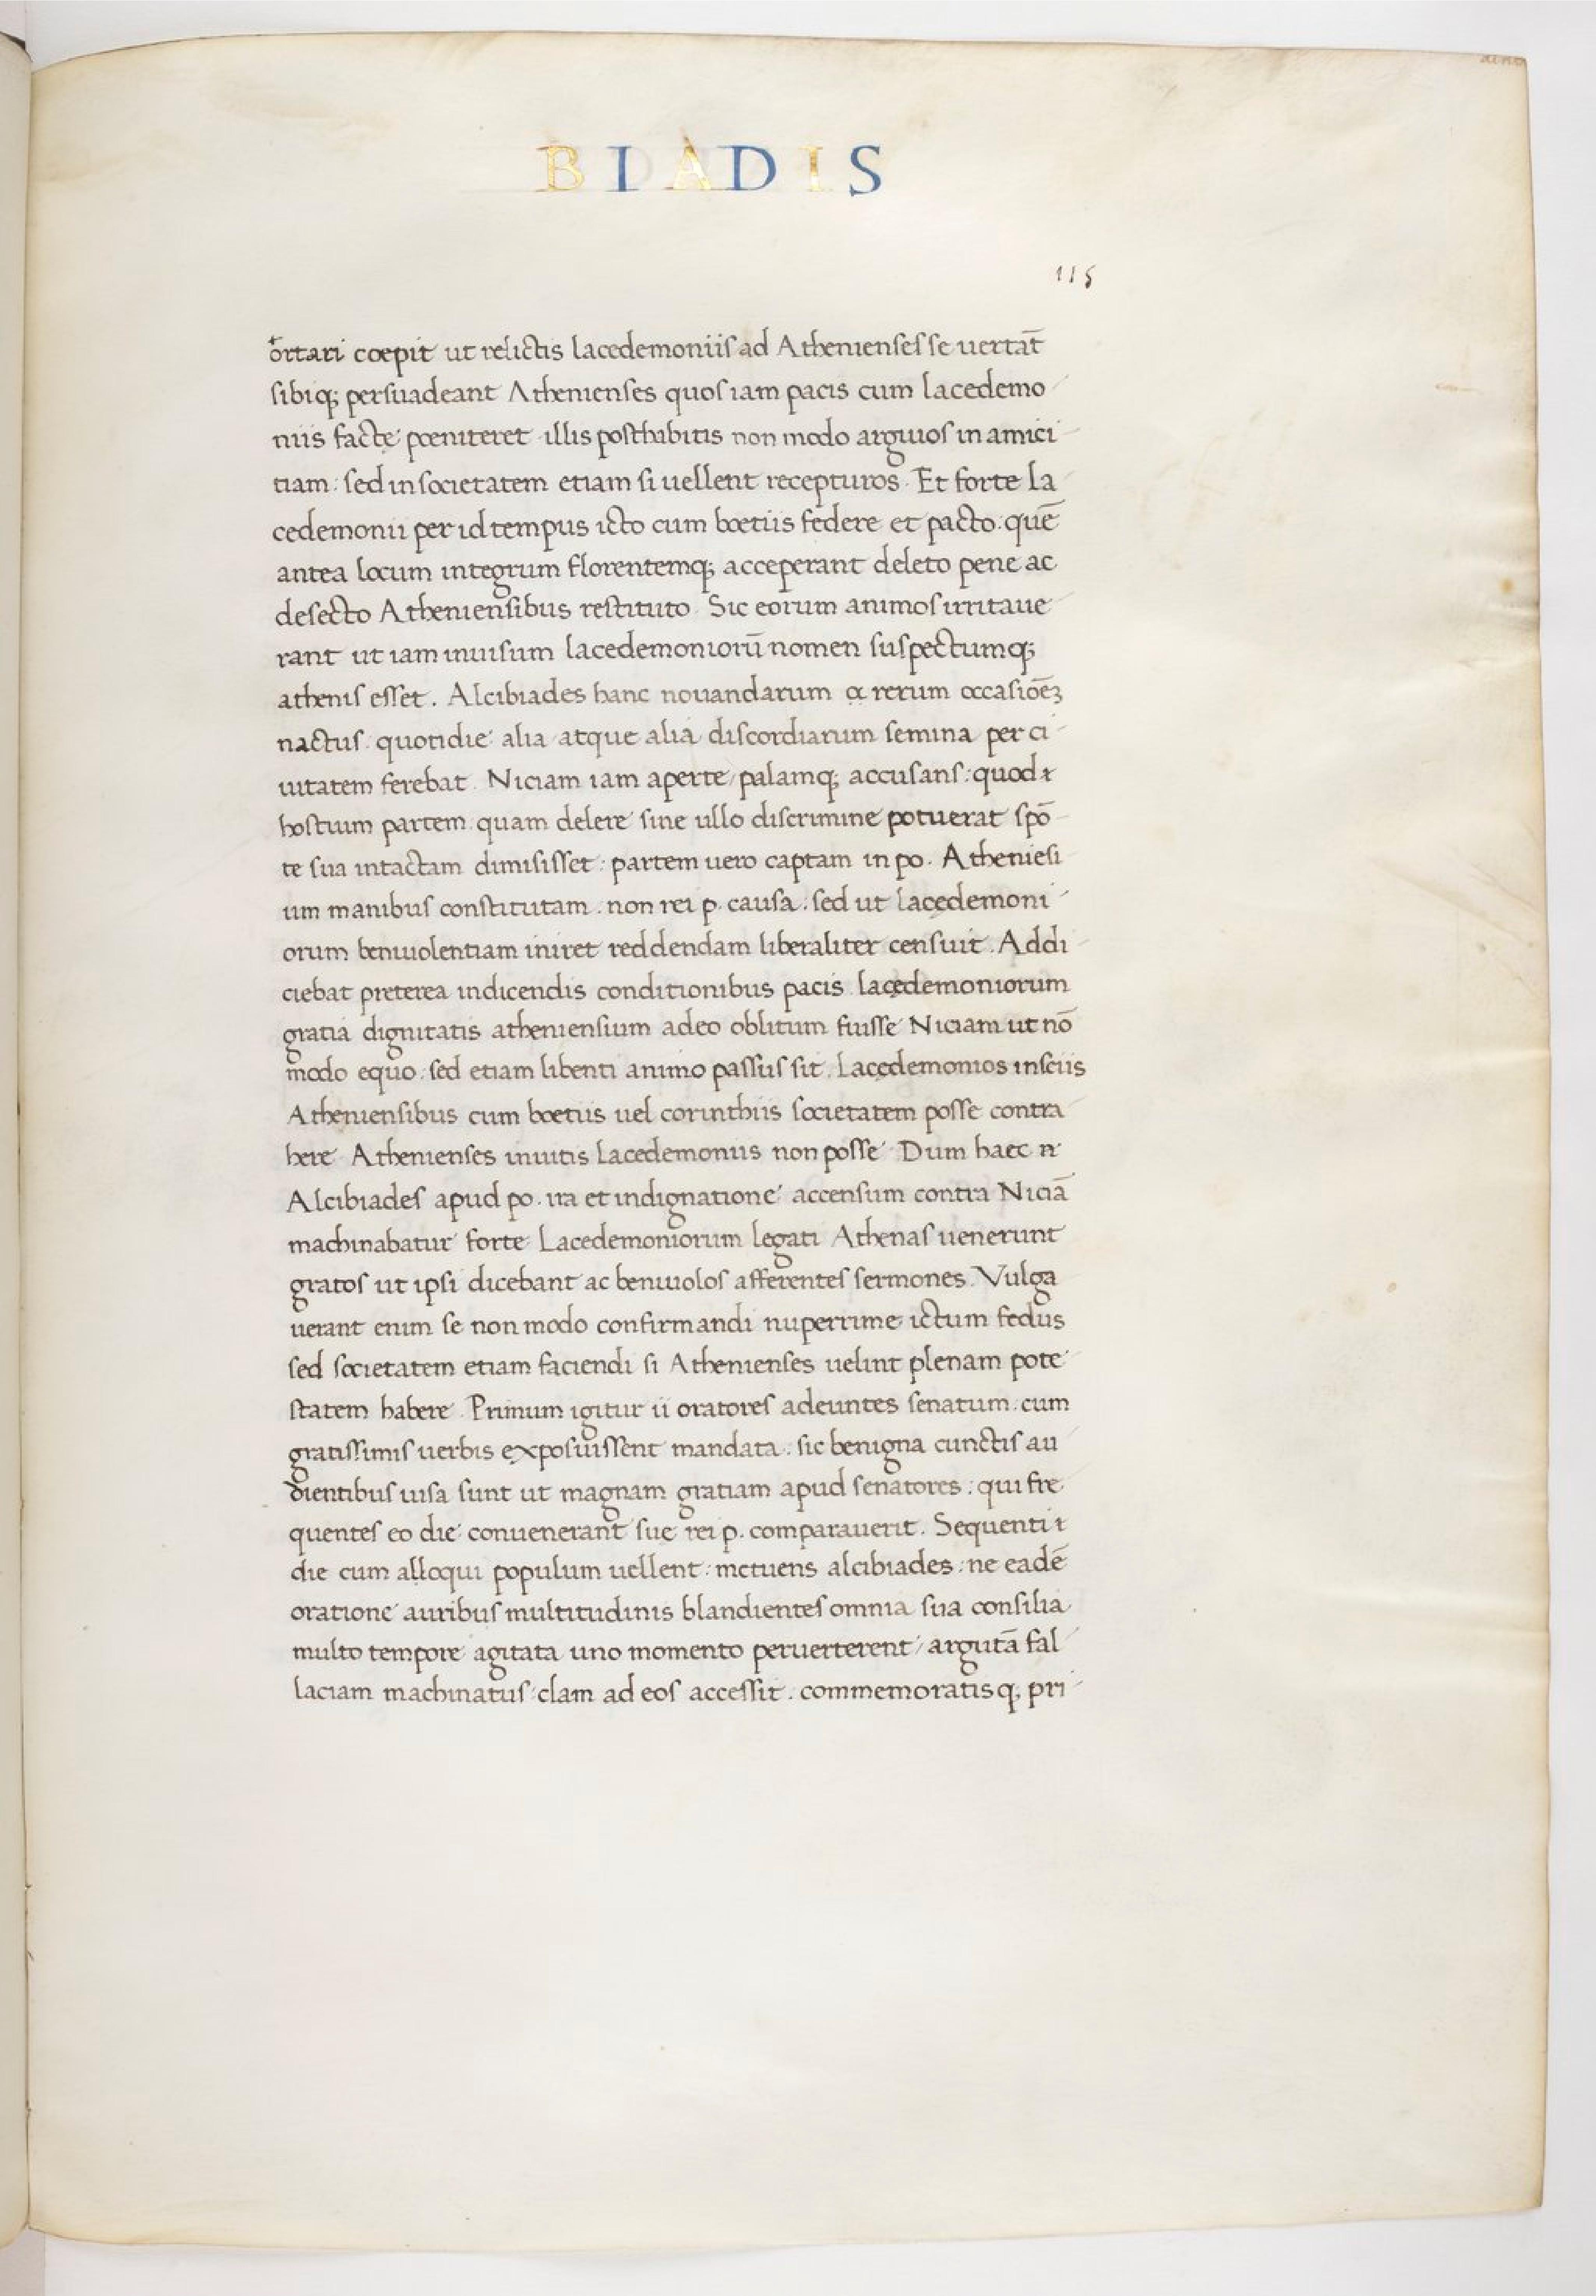 BIADIS
115
ortari coepit ut relictis lacedemoniis ad Athenienses se uertāt
sibiq; persuadeant Athenienses quos iam pacis cum lacedemo
niis factę poeniteret illis posthabitis non modo argiuos in amici
tiam: sed in societatem etiam si uellent recepturos. Et forte la
cedemonii per id tempus icto cum boetiis federe et pacto: quē
antea locum integrum florentemq; acceperant deleto pene ac
desecto Atheniensibus restituto. Sic eorum animos irritaue
rant ut iam inuisum lacedemoniorū nomen suspectumq;
athenis esset. Alcibiades hanc nouandarum rerum occasiōeꝫ
nactus quotidie alia atque alia discordiarum semina per ci
uitatem ferebat. Niciam iam aperte palamq; accusans: quod
hostium partem quam delere sine ullo discrimine potuerat spō
te sua intactam dimisisset: partem uero captam in po. Atheniesi
um manibus constitutam. non rei p. causa. sed ut lacędemoni
orum beniuolentiam iniret reddendam liberaliter censuit. Addi
ciebat preterea indicendis conditionibus pacis lacędemoniorum
gratia dignitatis atheniensium adeo oblitum fuisse Niciam ut nō
modo equo: sed etiam libenti animo passus sit. Lacędemonios insciis
Atheniensibus cum boetiis uel corinthiis societatem posse contra
here Athenienses inuitis Lacedemoniis non posse Dum haec
Alcibiades apud po. ira et indignatione accensum contra Niciā
machinabatur forte Lacedemoniorum legati Athenas uenerunt
gratos ut ipsi dicebant ac beniuolos afferentes sermones. Vulga
uerant enim se non modo confirmandi nuperrime ictum fedus
sed societatem etiam faciendi si Athenienses uelint plenam pote
statem habere. Primum igitur ii oratores adeuntes senatum: cum
gratissimis uerbis exposuissent mandata: sic benigna cunctis au
dientibus uisa sunt ut magnam gratiam apud senatores: qui fre
quentes eo die conuenerant suę rei p. comparauerit. Sequenti
die cum alloqui populum uellent: metuens alcibiades: ne eadē
oratione auribus multitudinis blandientes omnia sua consilia
multo tempore agitata uno momento peruerterent / argutā fal
laciam machinatus: clam ad eos accessit. commemoratisq; pri